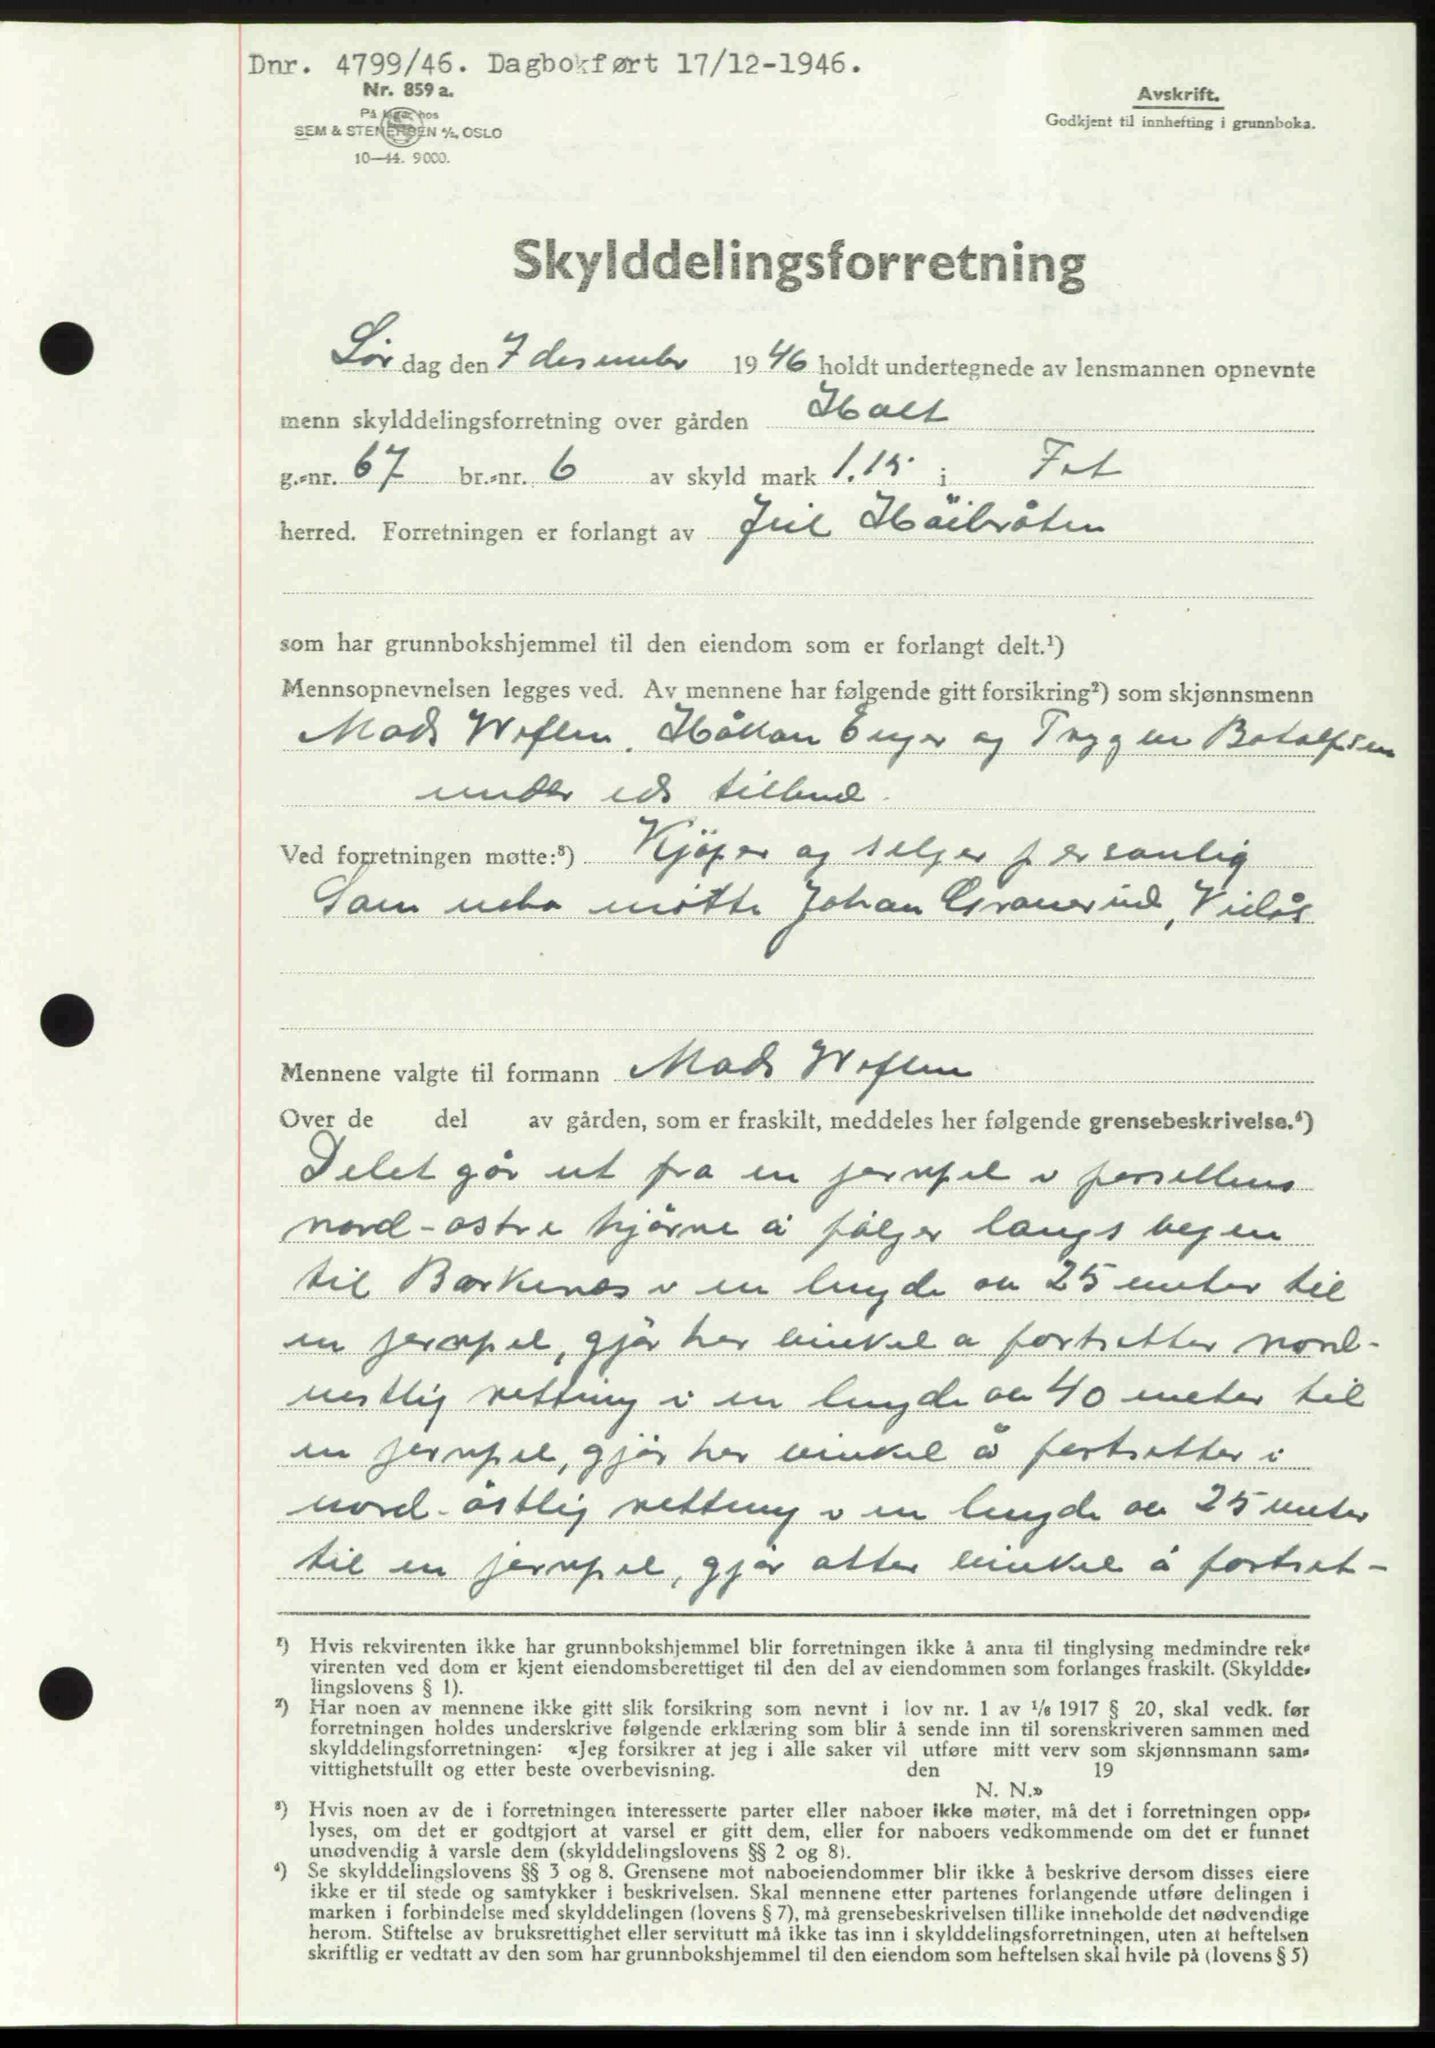 Dnr. 4799/46. Dagbokført 17/12-1946.
Nr. 859 a.
På lager hos
SEM & STENERSEN A/S, OSLO
10—44. 9000.
Avskrift.
Godkjent til innhefting i grunnboka.
Skylddelingsforretning
Lør dag den 7 desember 1946 holdt undertegnede av lensmannen opnevnte
menn skylddelingsforretning over gården Holt
g.-nr. 67 br.-nr. 6 av skyld mark 1.15 i Fet
herred. Forretningen er forlangt av Juil Höibråten
som har grunnbokshjemmel til den eiendom som er forlangt delt.¹)
Mennsopnevnelsen legges ved. Av mennene har følgende gitt forsikring²) som skjønnsmenn
Mads Weflen, Håkon Enger og Trygve Botolfsen
under eds tilbud.
Ved forretningen møtte:³) Kjöper og selger personlig
Som nabo møtte Johan Granerud, Vilås
Mennene valgte til formann Mads Weflen
Over de del av gården, som er fraskilt, meddeles her følgende grensebeskrivelse.⁴)
Delet går ut fra en jernpel i parsellens
nord-østre hjørne å følger langs vegen
til Barkenes i en lengde av 25 meter til
en jernpel, gjør her vinkel å fortsetter nord-
vestlig retting i en lengde av 40 meter til
en jernpel, gjør her vinkel å fortsetter i
nord-östlig retting i en lengde av 25 meter
til en jernpel, gjør atter vinkel å fortset-
¹) Hvis rekvirenten ikke har grunnbokshjemmel blir forretningen ikke å anta til tinglysing medmindre rek-
virenten ved dom er kjent eiendomsberettiget til den del av eiendommen som forlanges fraskilt. (Skyldde-
lingslovens § 1).
²) Har noen av mennene ikke gitt slik forsikring som nevnt i lov nr. 1 av 1/6 1917 § 20, skal vedk. før
forretningen holdes underskrive følgende erklæring som blir å sende inn til sorenskriveren sammen med
skylddelingsforretningen: «Jeg forsikrer at jeg i alle saker vil utføre mitt verv som skjønnsmann sam-
vittighetsfullt og etter beste overbevisning. den 19
N. N.»
³) Hvis noen av de i forretningen interesserte parter eller naboer ikke møter, må det i forretningen opp-
lyses, om det er godtgjort at varsel er gitt dem, eller for naboers vedkommende om det er funnet
unødvendig å varsle dem (skylddelingslovens §§ 2 og 8).
⁴) Se skylddelingslovens §§ 3 og 8. Grensene mot naboeiendommer blir ikke å beskrive dersom disses eiere
ikke er til stede og samtykker i beskrivelsen. Skal mennene etter partenes forlangende utføre delingen i
marken i forbindelse med skylddelingen (lovens § 7), må grensebeskrivelsen tillike inneholde det nødvendige
herom. Stiftelse av bruksrettighet eller servitutt må ikke tas inn i skylddelingsforretningen, uten at heftelsen
skriftlig er vedtatt av den som har grunnbokshjemmel til den eiendom som heftelsen skal hvile på (lovens § 5)